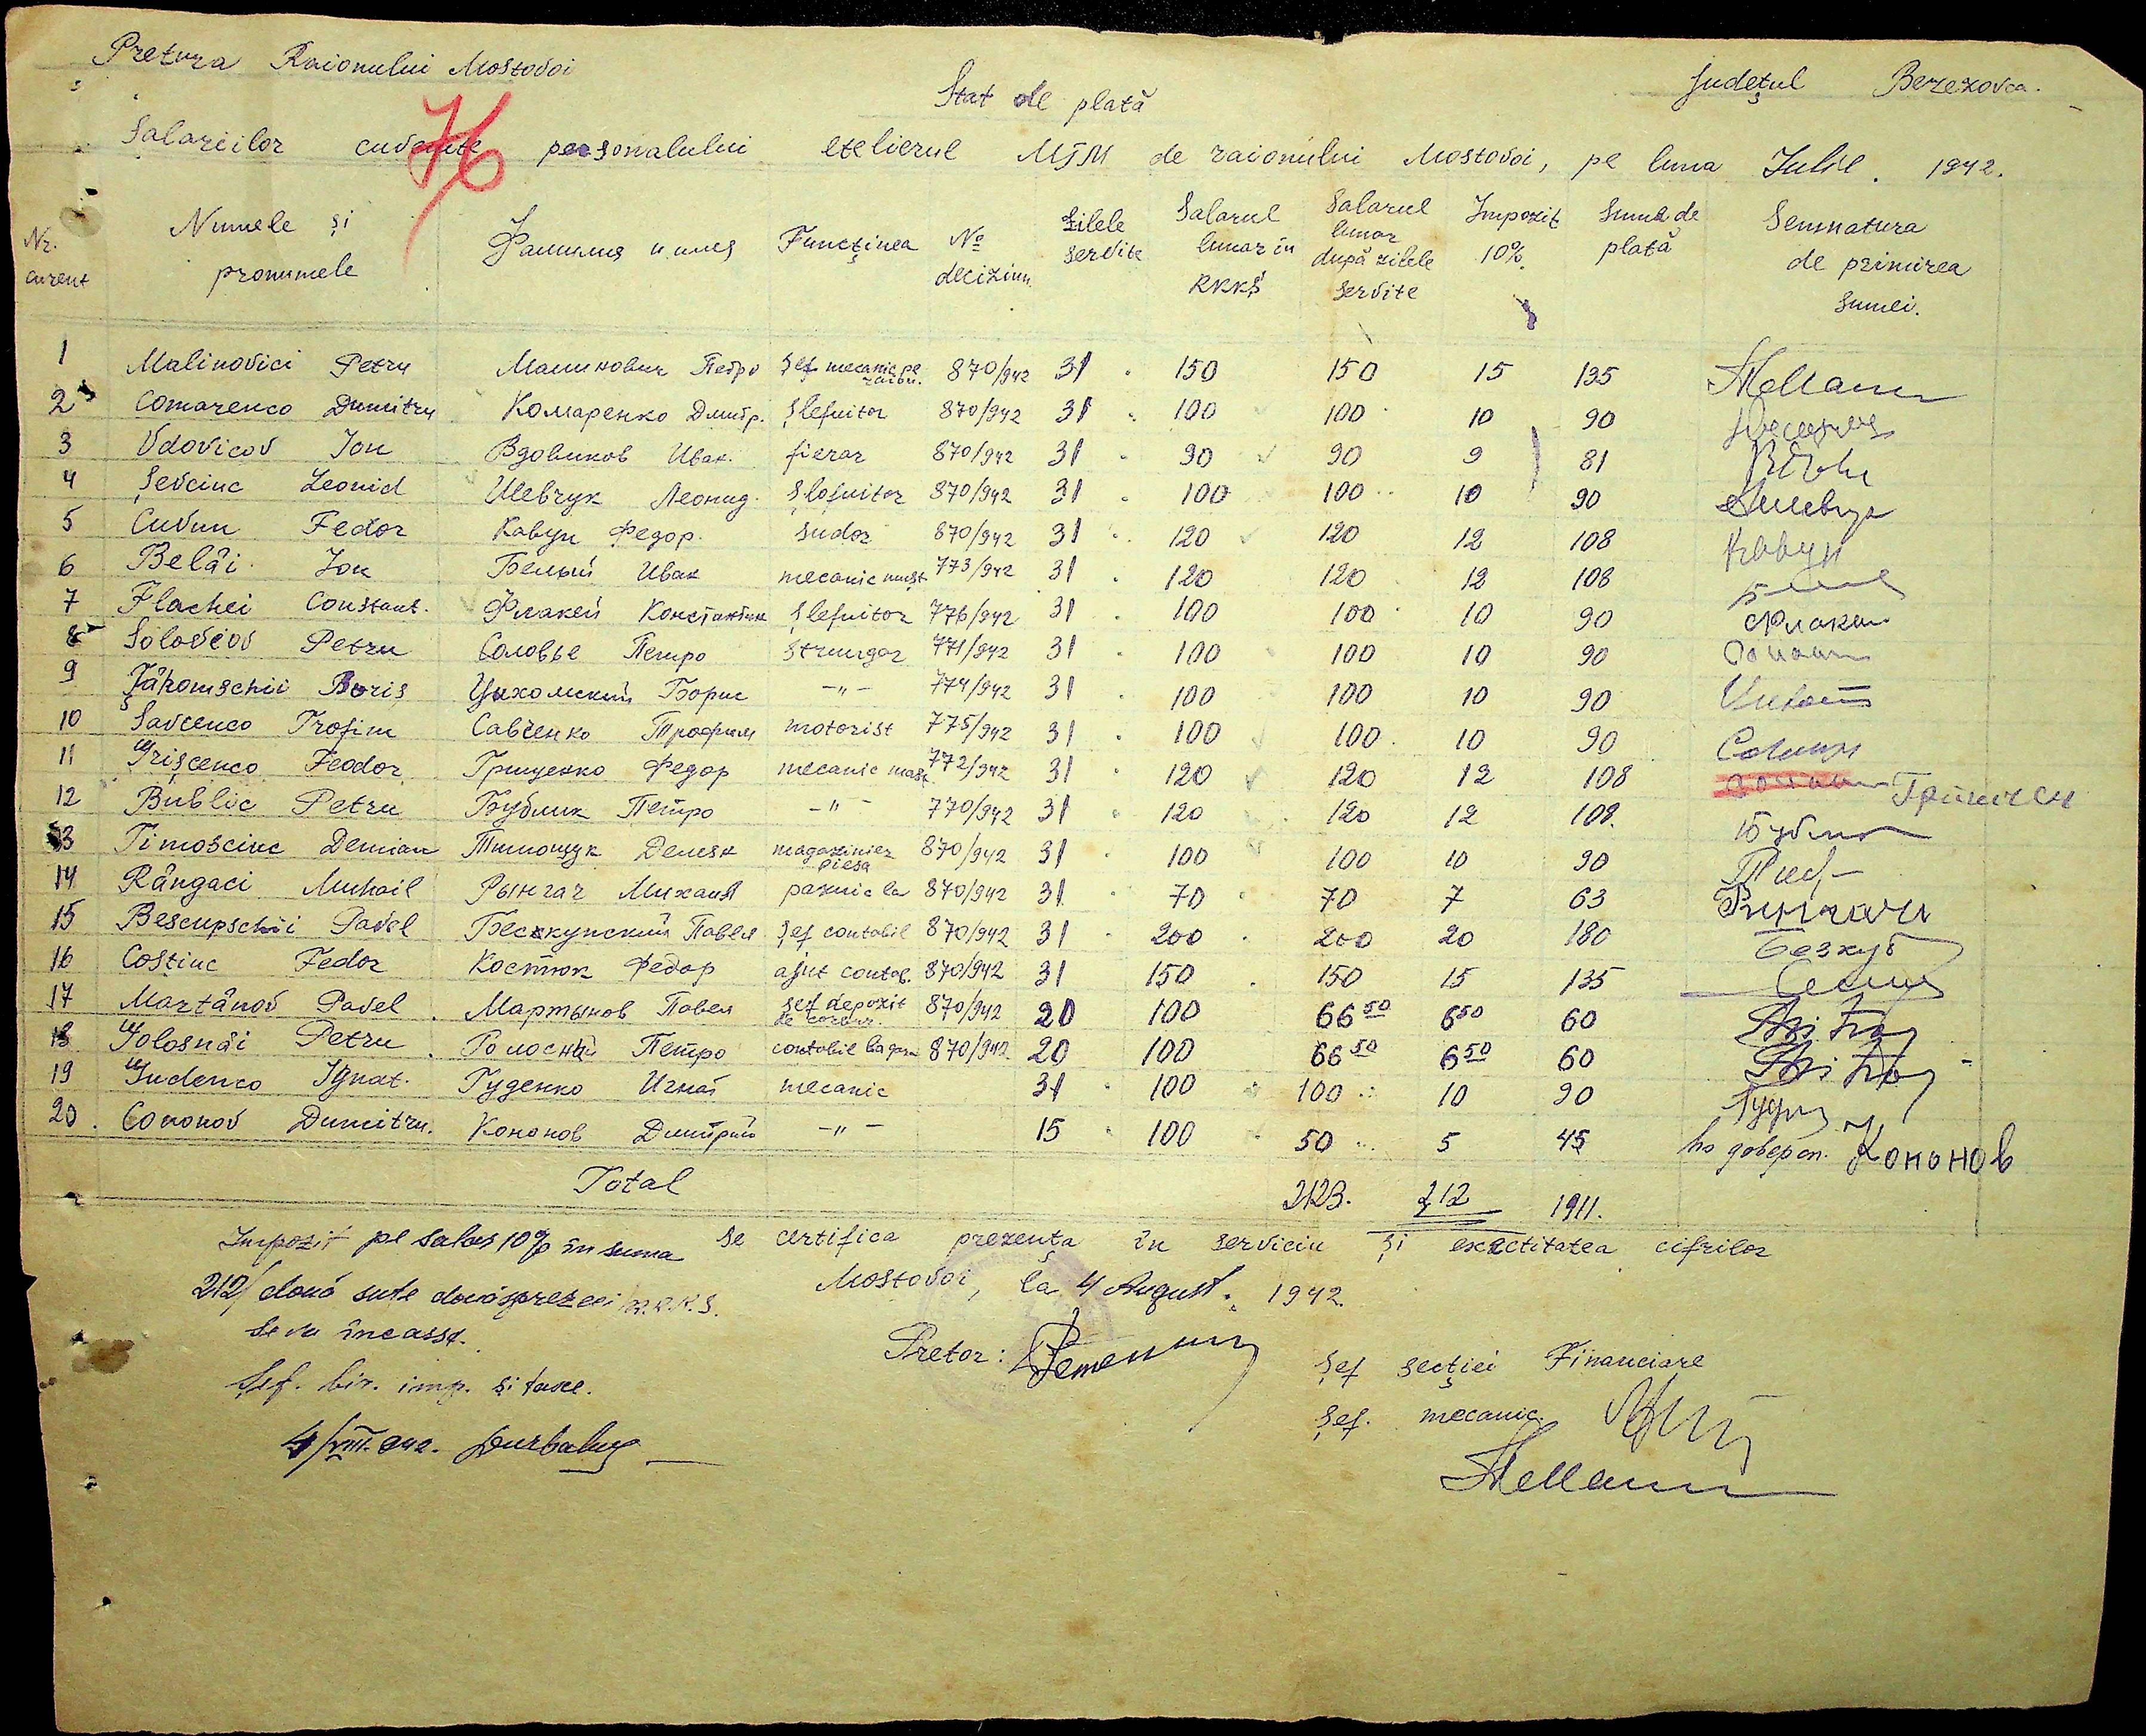 Pretura Raionului Mostovoi
Județul Berezovca.
Stat de plată
76
Salariilor cuvenite personalului etelierul MTM de raionului Mostovoi, pe luna Iulie. 1942.
Nr. curent Numele și pronumele Фамилия и имя Funcținea № deciziun. Zilele servite Salarul lunar în RKKS Salarul lunar după zilele servite Impozit 10% Suma de plată Semnatura de primirea sumei.
1 Malinovici Petru Малинович Петро Șef mecanic pe raion. 870/942 31 150 150 15 135
2 Comarenco Dumitru Комаренко Дмитр. Șlefuitor 870/942 31 100 100 10 90
3 Vdovicov Ion Вдовиков Иван. fierar 870/942 31 90 90 9 81
4 Șevciuc Leonid Шевчук Леонид. Șlefuitor 870/942 31 100 100 10 90
5 Cuvun Fedor Кавун Федор. Sudor 870/942 31 120 120 12 108 Кавун
6 Belâi Ion Белый Иван mecanic mașt 773/942 31 120 120 12 108
7 Flachei Constant. Флакей Константин Șlefuitor 776/942 31 100 100 10 90
8 Soloviov Petru Соловье Петро Strungar 771/942 31 100 100 10 90
9 Țâhomschii Boris Цихомский Борис -"- 774/942 31 100 100 10 90
10 Savcenco Trofim Савченко Трофим motorist 775/942 31 100 100 10 90
11 Grișcenco Feodor Грищенко Федор mecanic mașt 772/942 31 120 120 12 108
12 Bublic Petru Бублик Петро -"- 770/942 31 120 120 12 108.
13 Timosciuc Demian Тимощук Демян magaziniez piesa 870/942 31 100 100 10 90
14 Rângaci Muhail Рынгач Михаил paznic la 870/942 31 70 70 7 63
15 Bescupschii Pavel Бескупский Павел șef contabil 870/942 31 200 200 20 180
16 Costiuc Fedor Костюк Федор ajut contab. 870/942 31 150 150 15 135
17 Martânov Pavel Мартынов Павел șef depozit 870/942 20 100 66 50 6 50 60
18 Golosnâi Petru Голосный Петро contabil 870/942 20 100 66 50 6 50 60
19 Gudenco Ignat. Гуденко Игнат mecanic 31 100 100 10 90
20. Cononov Dumitru. Кононов Дмитрий -"- 15 100 50 5 45 по доверен. Кононов
Total 2123. 212 1911.
Se certifica prezența în serviciu și exactitatea cifrilor
Mostovoi, la 4 August. 1942.
Impozit pe salar 10% în suma
212/ două sute douăsprezeci/ R.K.K.S.
se va încassa.
Șef. bir. imp. și taxe.
4/VIII.942.
Pretor:
Șef secției Financiare
Șef. mecanic.